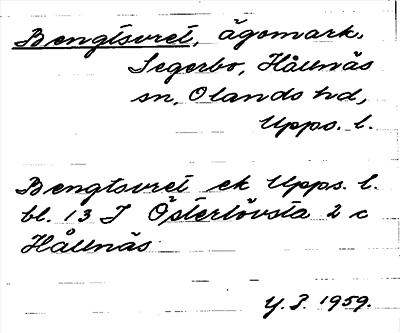 Bengtsvret, ägomark,
Segerbo, Hållnäs
sn, Olands hd,
Upps. l.
Bengtsvret ek Upps. l.
bl. 13 J Österlövsta 2 c
Hållnäs
Y. P. 1959.